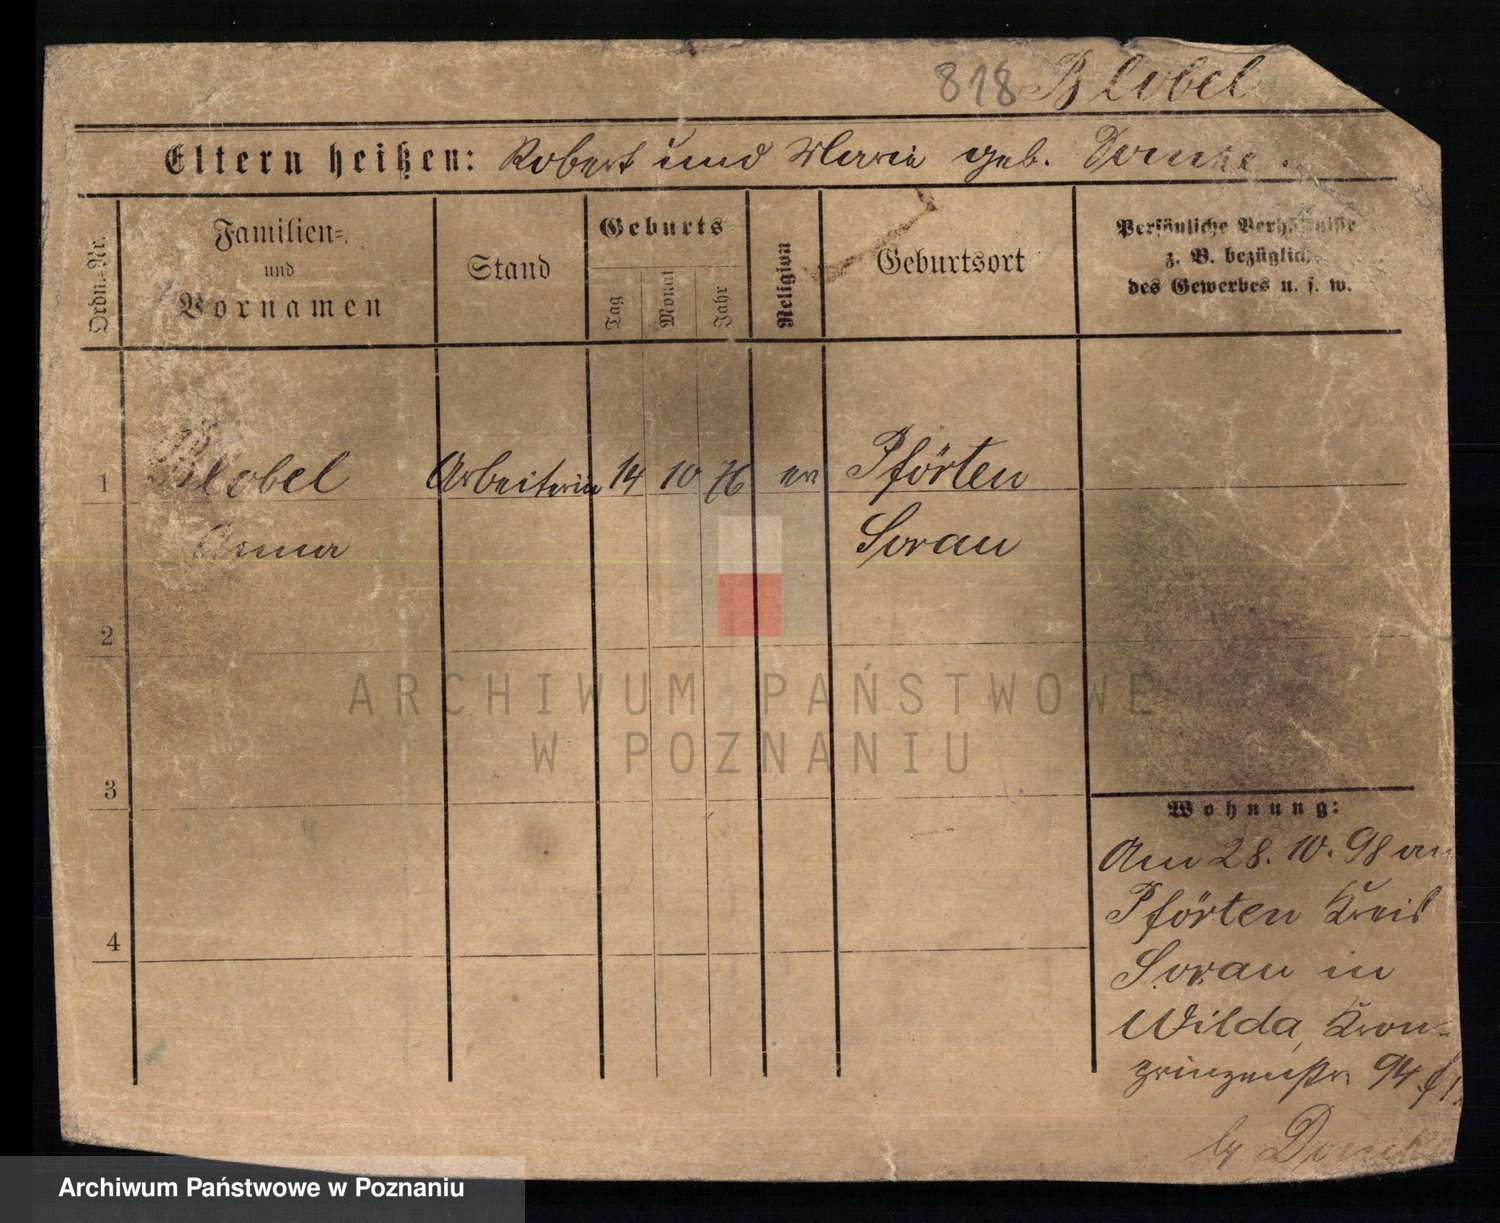 818 Blobel
Eltern heißen: Robert und Marie geb.
Ordn.=Nr.
Familien=
und
Vornamen
Stand
Geburts
Tag
Monat
Jahr
Religion
Geburtsort
Persönliche Verhältnisse
z. B. bezüglich
des Gewerbes u. s. w.
1 Blobel Arbeiterin 14 10 76 ev Pförten
Anna Sorau
2
3
4
Wohnung:
Am 28. 10. 98 an
Pförten Kreis
Sorau in
Wilda, Kron-
prinzenstr. 94
ARCHIWUM PAŃSTWOWE
W POZNANIU
Archiwum Państwowe w Poznaniu